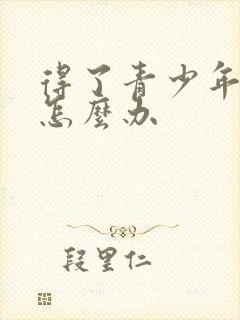 得了青少年
怎麼办
段里仁